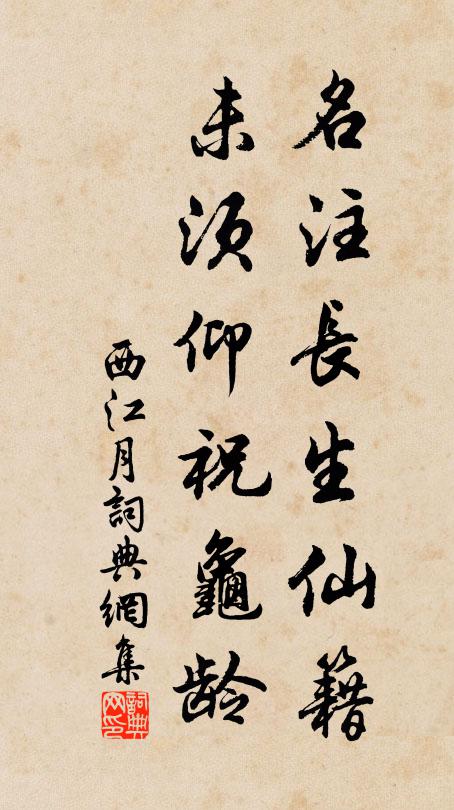 名注長生仙籍
未須仰祝龜龄
西江月詞典網集
詞典
网印